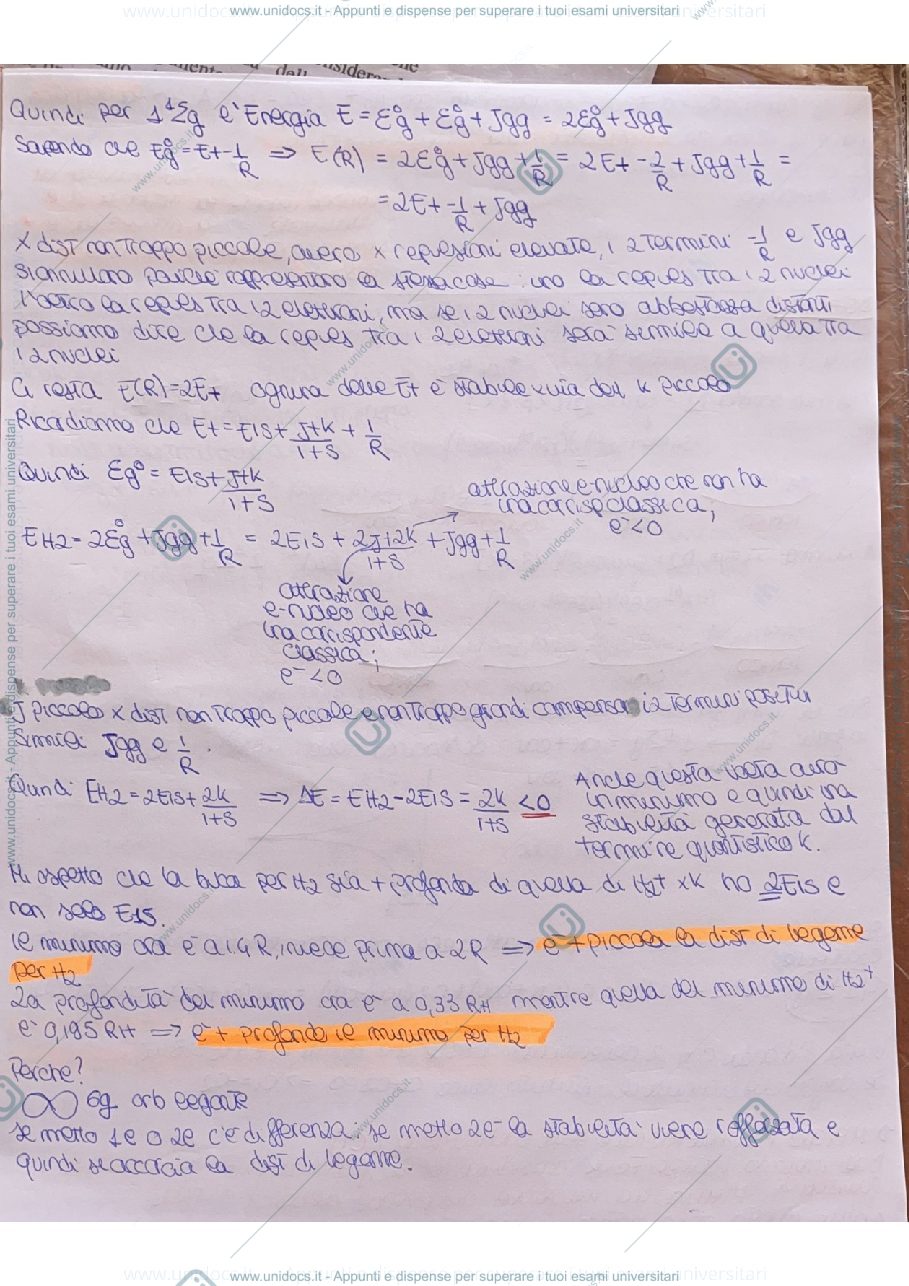 www.unidocs.it - Appunti e dispense per superare i tuoi esami universitari
Quindi per 1¹Σg è Energia E = Eg° + Eg° + Jgg = 2Eg° + Jgg
Sapendo che Eg° = E+ - 1/R ⇒ E(R) = 2Eg° + Jgg + 1/R = 2E+ - 2/R + Jgg + 1/R =
= 2E+ - 1/R + Jgg
x dist non troppo piccole, ovvero x repulsioni elevate, i 2 termini -1/R e Jgg
si annullano poiché rappresentano la stessa cosa: uno la repuls tra i 2 nuclei
l'altro la repuls tra i 2 elettroni, ma se i 2 nuclei sono abbastanza distanti
possiamo dire che la repuls tra i 2 elettroni sarà simile a quella tra
i 2 nuclei
Ci resta E(R) = 2E+ ognuna delle E+ è stabile x via del k piccolo
Ricordiamo che E+ = E1s + J+k/1+S + 1/R
Quindi Eg° = E1s + J+k/1+S
attrazione e-nucleo che non ha
una corrisp classica,
è <0
EH2 = 2Eg° + Jgg + 1/R = 2E1s + 2J+2k/1+S + Jgg + 1/R
attrazione
e-nucleo che ha
una corrispondente
classica;
è <0
J piccolo x dist non troppo piccole e non troppo grandi compensa i 2 termini positivi
simili Jgg e 1/R.
Quindi EH2 = 2E1s + 2k/1+S ⇒ ΔE = EH2 - 2E1s = 2k/1+S <0
Anche questa volta avrò
un minimo e quindi una
stabilità generata dal
termine quantistico k.
Mi aspetto che la buca per H2 sia + profonda di quella di H2+ xk ho 2E1s e
non solo E1s.
Il minimo ora è a 1.4 R, invece prima a 2R ⇒ è + piccola la dist di legame
per H2
La profondità del minimo ora è a 0,33 RH mentre quella del minimo di H2+
è 0,195 RH ⇒ è + profondo il minimo per H2
Perche?
σg orb legante
se metto 1e o 2e c'è differenza, se metto 2e- la stabilità viene rafforzata e
quindi si accorcia la dist di legame.
www.unidocs.it - Appunti e dispense per superare i tuoi esami universitari